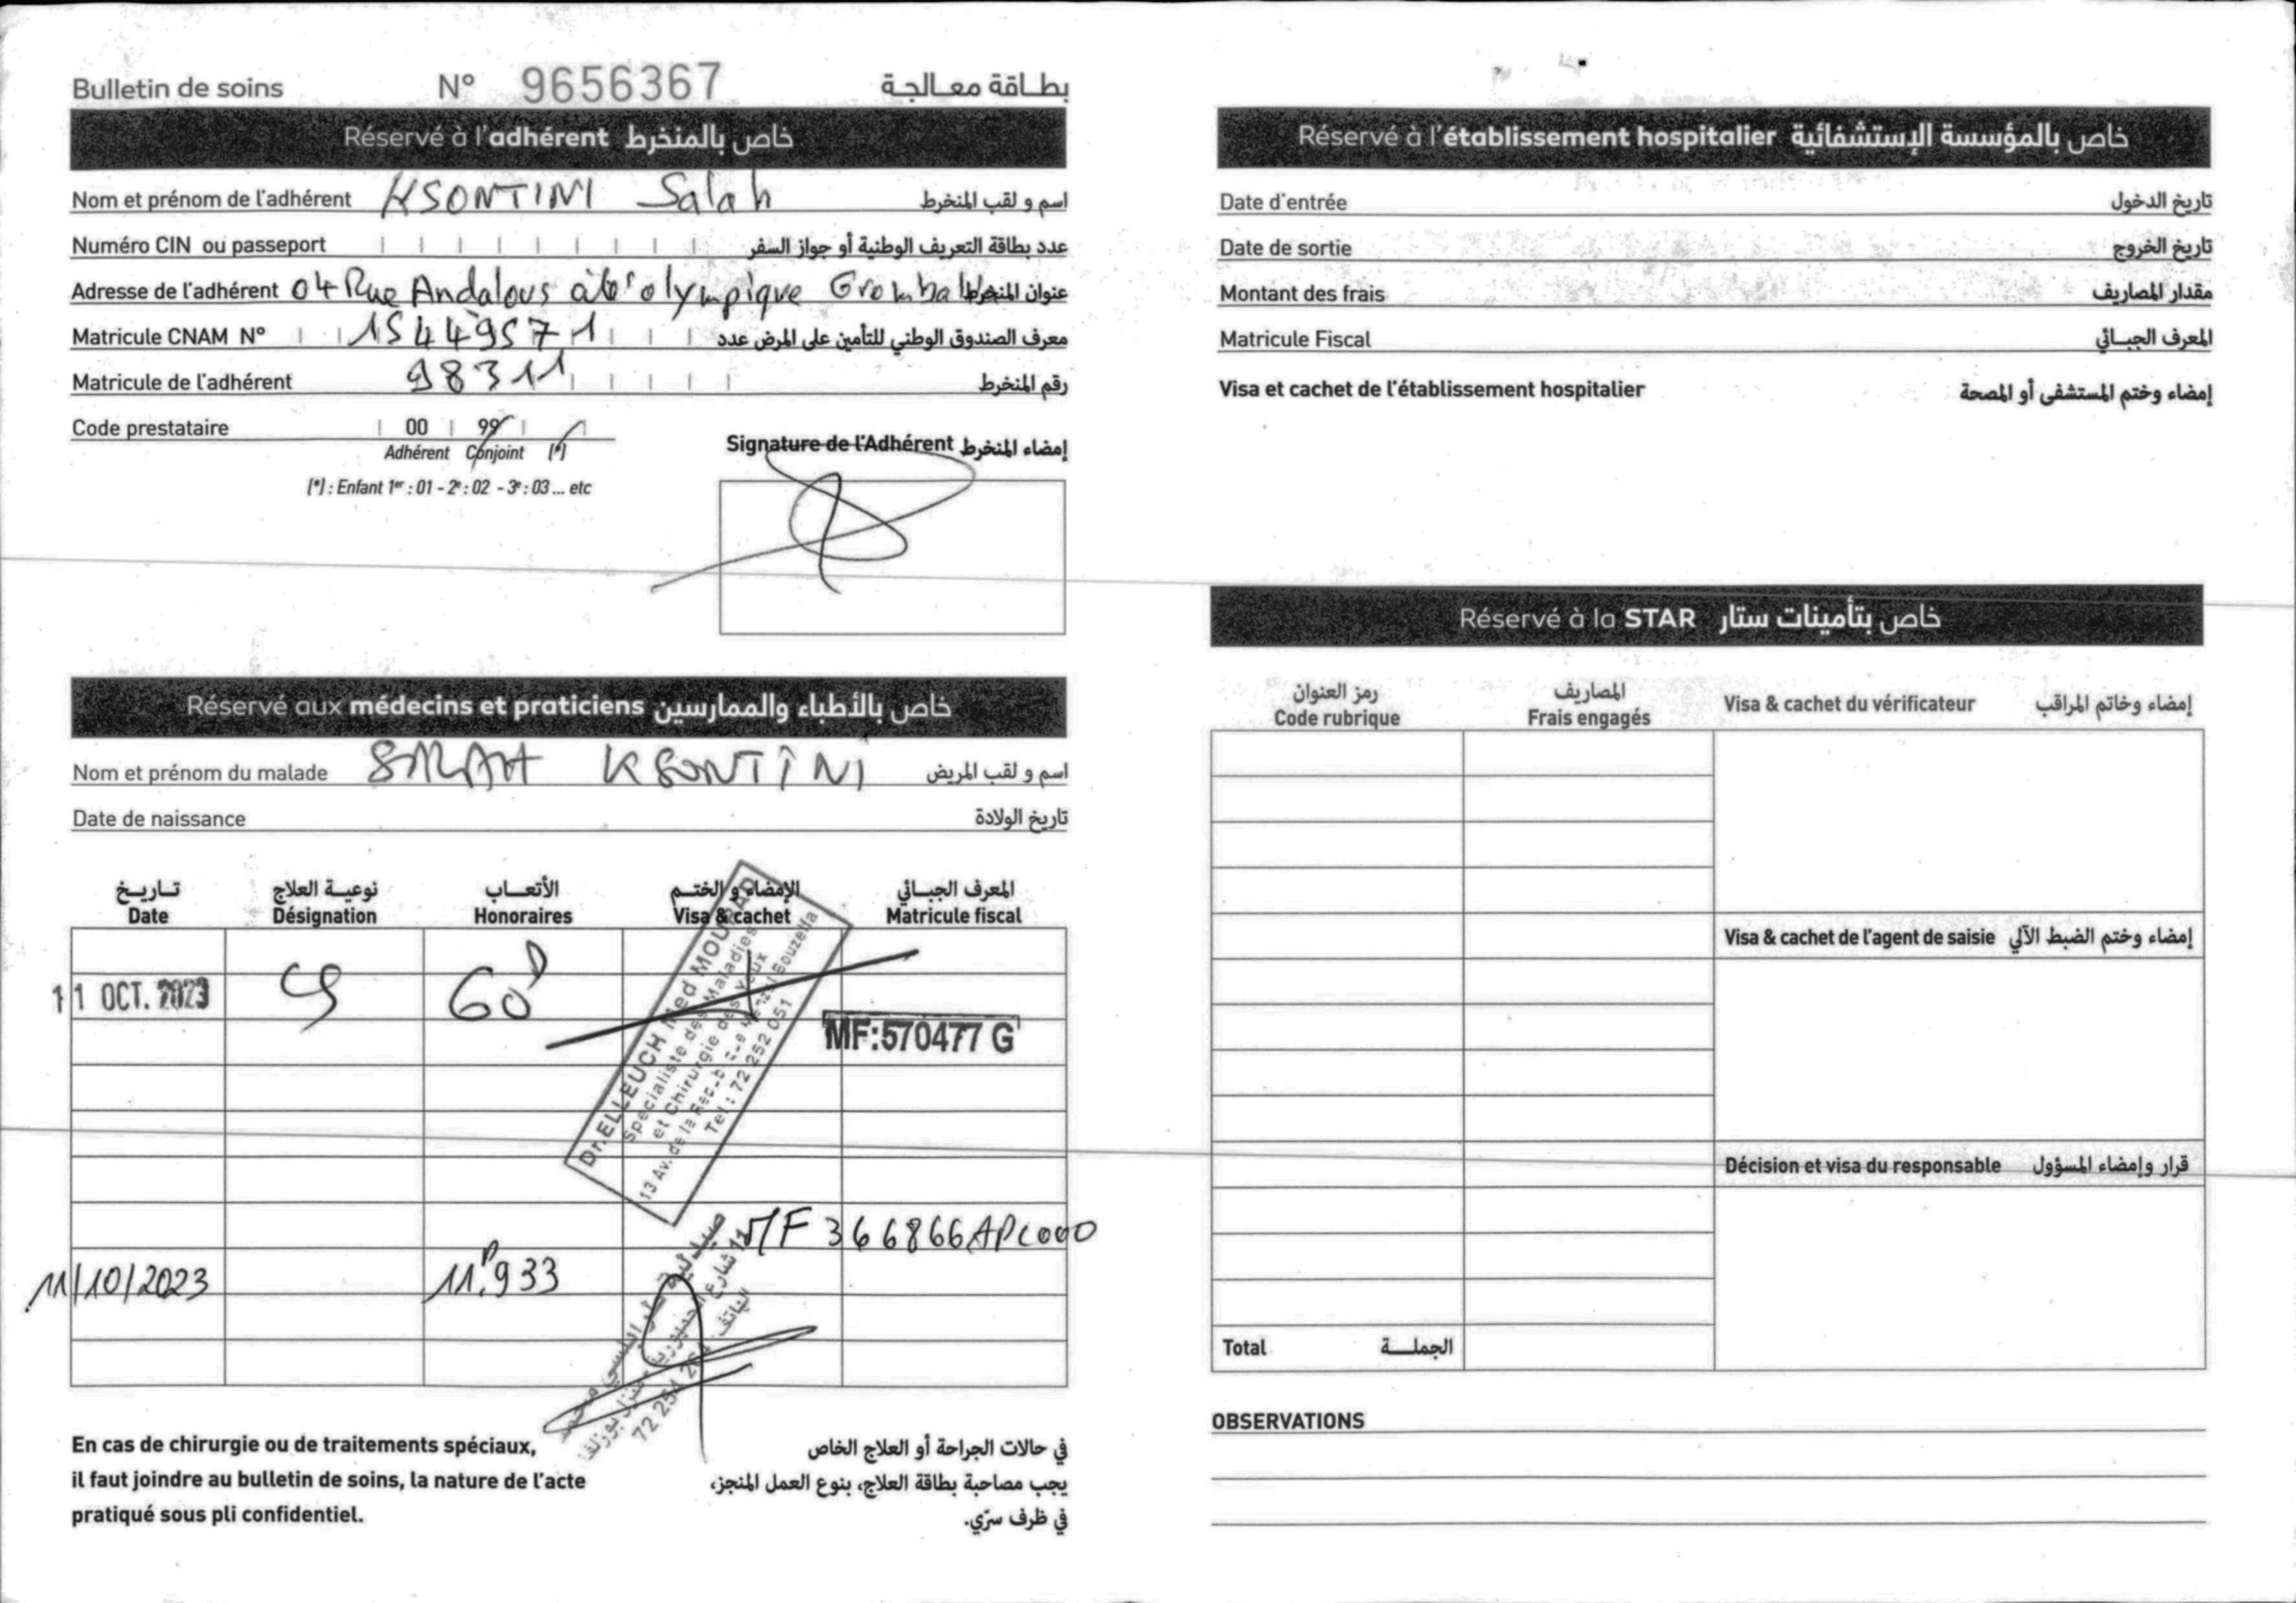 Bulletin de soins N° 9656367 بطاقة معالجة
Réservé à l'adhérent خاص بالمنخرط
Nom et prénom de l'adhérent KSONTINI Salah اسم و لقب المنخرط
Numéro CIN ou passeport عدد بطاقة التعريف الوطنية أو جواز السفر
Adresse de l'adhérent 04 Rue Andalous olympique عنوان المنخرط
Matricule CNAM N° 15449571 معرف الصندوق الوطني للتأمين على المرض عدد
Matricule de l'adhérent 98311 رقم المنخرط
Code prestataire 00 99
Adhérent Conjoint (*)
(*) : Enfant 1er : 01 - 2e : 02 - 3e : 03 ... etc
Signature de l'Adhérent إمضاء المنخرط
Réservé aux médecins et praticiens خاص بالأطباء والممارسين
Nom et prénom du malade SALAH KSONTINI اسم و لقب المريض
Date de naissance تاريخ الولادة
تاريخ نوعية العلاج الأتعاب الإمضاء و الختم المعرف الجبائي
Date Désignation Honoraires Visa & cachet Matricule fiscal
11 OCT. 2023 CS 60D
MF:570477 G
Dr.ELLEUCH Med MOURAD
Spécialiste des Maladies
et Chirurgie des Yeux
13 Av. de la Menzel Bouzelfa
Tel : 72 252 051
M/F 366866APC000
11/10/2023 11D,933
صيدلية
11 شارع
الهاتف
En cas de chirurgie ou de traitements spéciaux,
il faut joindre au bulletin de soins, la nature de l'acte
pratiqué sous pli confidentiel.
في حالات الجراحة أو العلاج الخاص
يجب مصاحبة بطاقة العلاج، بنوع العمل المنجز،
في ظرف سرّي.
Réservé à l'établissement hospitalier خاص بالمؤسسة الإستشفائية
Date d'entrée تاريخ الدخول
Date de sortie تاريخ الخروج
Montant des frais مقدار المصاريف
Matricule Fiscal المعرف الجبائي
Visa et cachet de l'établissement hospitalier إمضاء وختم المستشفى أو المصحة
Réservé à la STAR خاص بتأمينات ستار
رمز العنوان المصاريف
Code rubrique Frais engagés Visa & cachet du vérificateur إمضاء وخاتم المراقب
Visa & cachet de l'agent de saisie إمضاء وختم الضبط الآلي
Décision et visa du responsable قرار وإمضاء المسؤول
Total الجملة
OBSERVATIONS